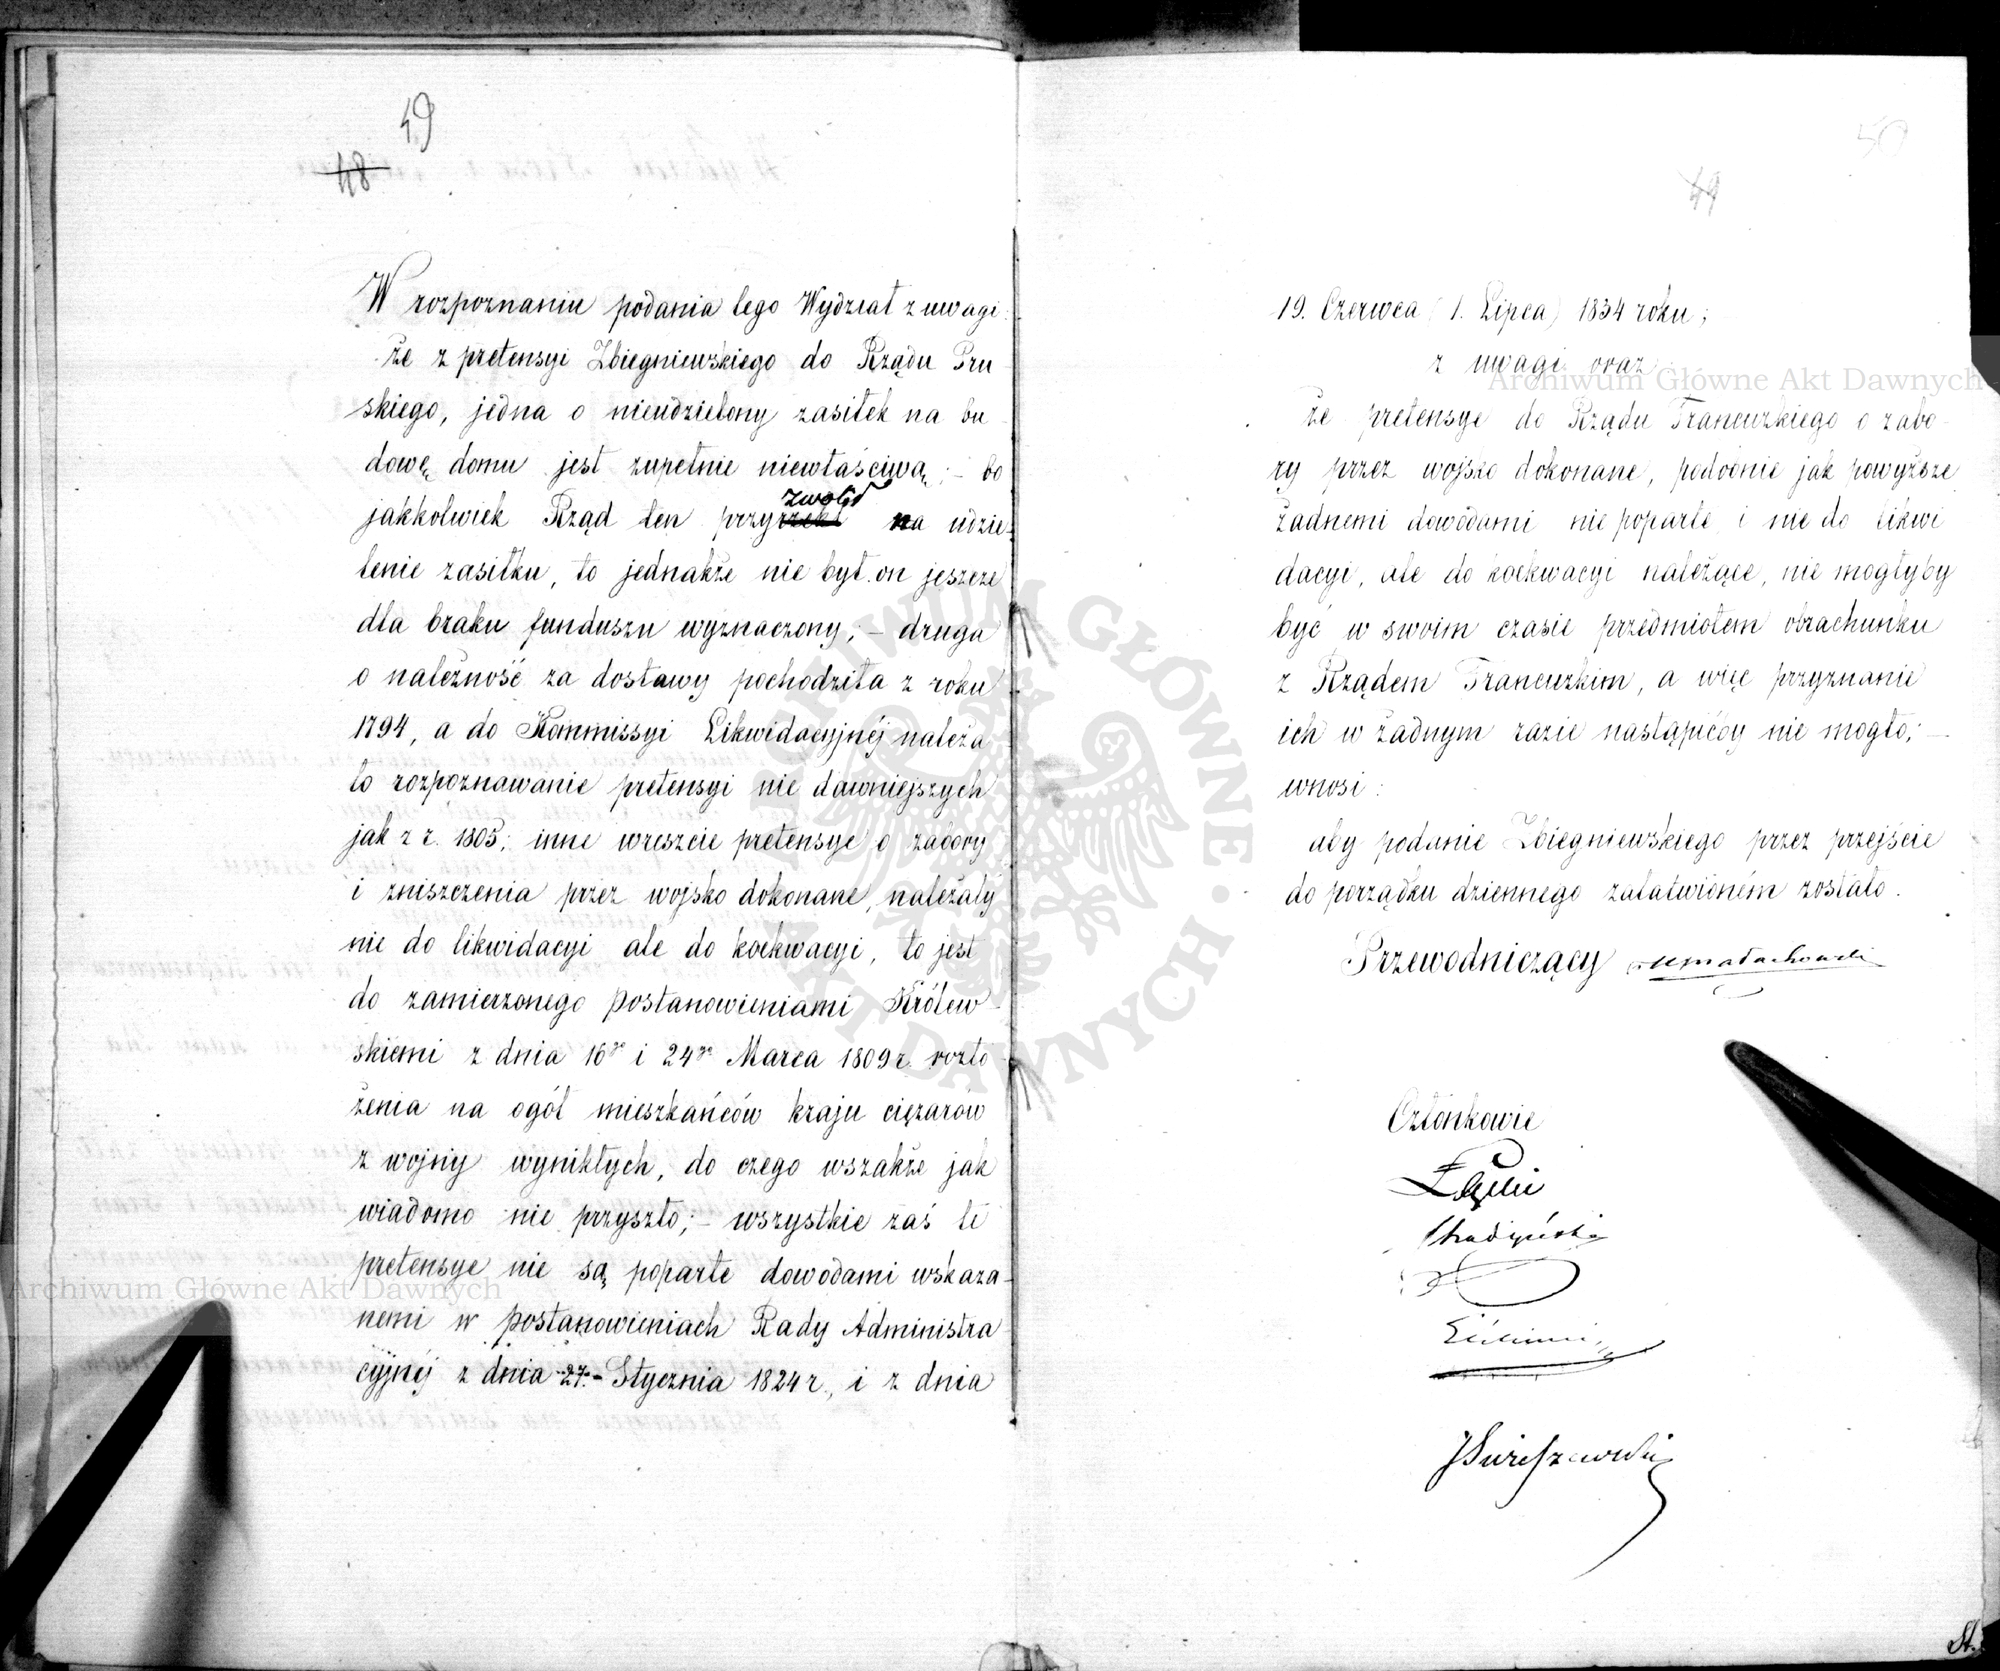 49
48
W rozpoznaniu podania tego Wydział z uwagi:
że z pretensyi Zbiegniewskiego do Rządu Pru
skiego, jedna o nieudzielony zasiłek na bu
dowę domu jest zupełnie niewłaściwą; – bo
zwolił
jakkolwiek Rząd ten przyrzekł na udzie-
lenie zasiłku, to jednakże nie był on jeszcze
dla braku funduszu wyznaczony; – druga
o należność za dostawy pochodziła z roku
1794, a do Kommissyi Likwidacyjnéj należa
ło rozpoznawanie pretensyi nie dawniejszych
jak z r. 1805; inne wreszcie pretensye o zabory
i zniszczenia przez wojsko dokonane, należały
nie do likwidacyi ale do koekwacyi, to jest
do zamierzonego postanowieniami Królew-
skiemi z dnia 16go i 24go Marca 1809 r. rozło
żenia na ogół mieszkańców kraju ciężarów
z wojny wynikłych, do czego wszakże jak
wiadomo nie przyszło; – wszystkie zaś te
pretensye nie są poparte dowodami wskaza-
nemi w postanowieniach Rady Administra
cyjnéj z dnia 27. Stycznia 1824 r., i z dnia
50
49
19. Czerwca (1. Lipca) 1834 roku;
z uwagi oraz
że pretensye do Rządu Francuzkiego o zabo-
ry przez wojsko dokonane, podobnie jak powyższe
żadnemi dowodami nie poparte i nie do likwi
dacyi, ale do koekwacyi należące, nie mogłyby
być w swoim czasie przedmiotem obrachunku
z Rządem Francuzkim, a więc przyznanie
ich w żadnym razie nastąpićby nie mogło; –
wnosi:
aby podanie Zbiegniewskiego przez przejście
do porządku dziennego załatwioném zostało.
Przewodniczący Małachowski
Członkowie
St.
Archiwum Główne Akt Dawnych
Archiwum Główne Akt Dawnych
ARCHIWUM GŁÓWNE AKT DAWNYCH